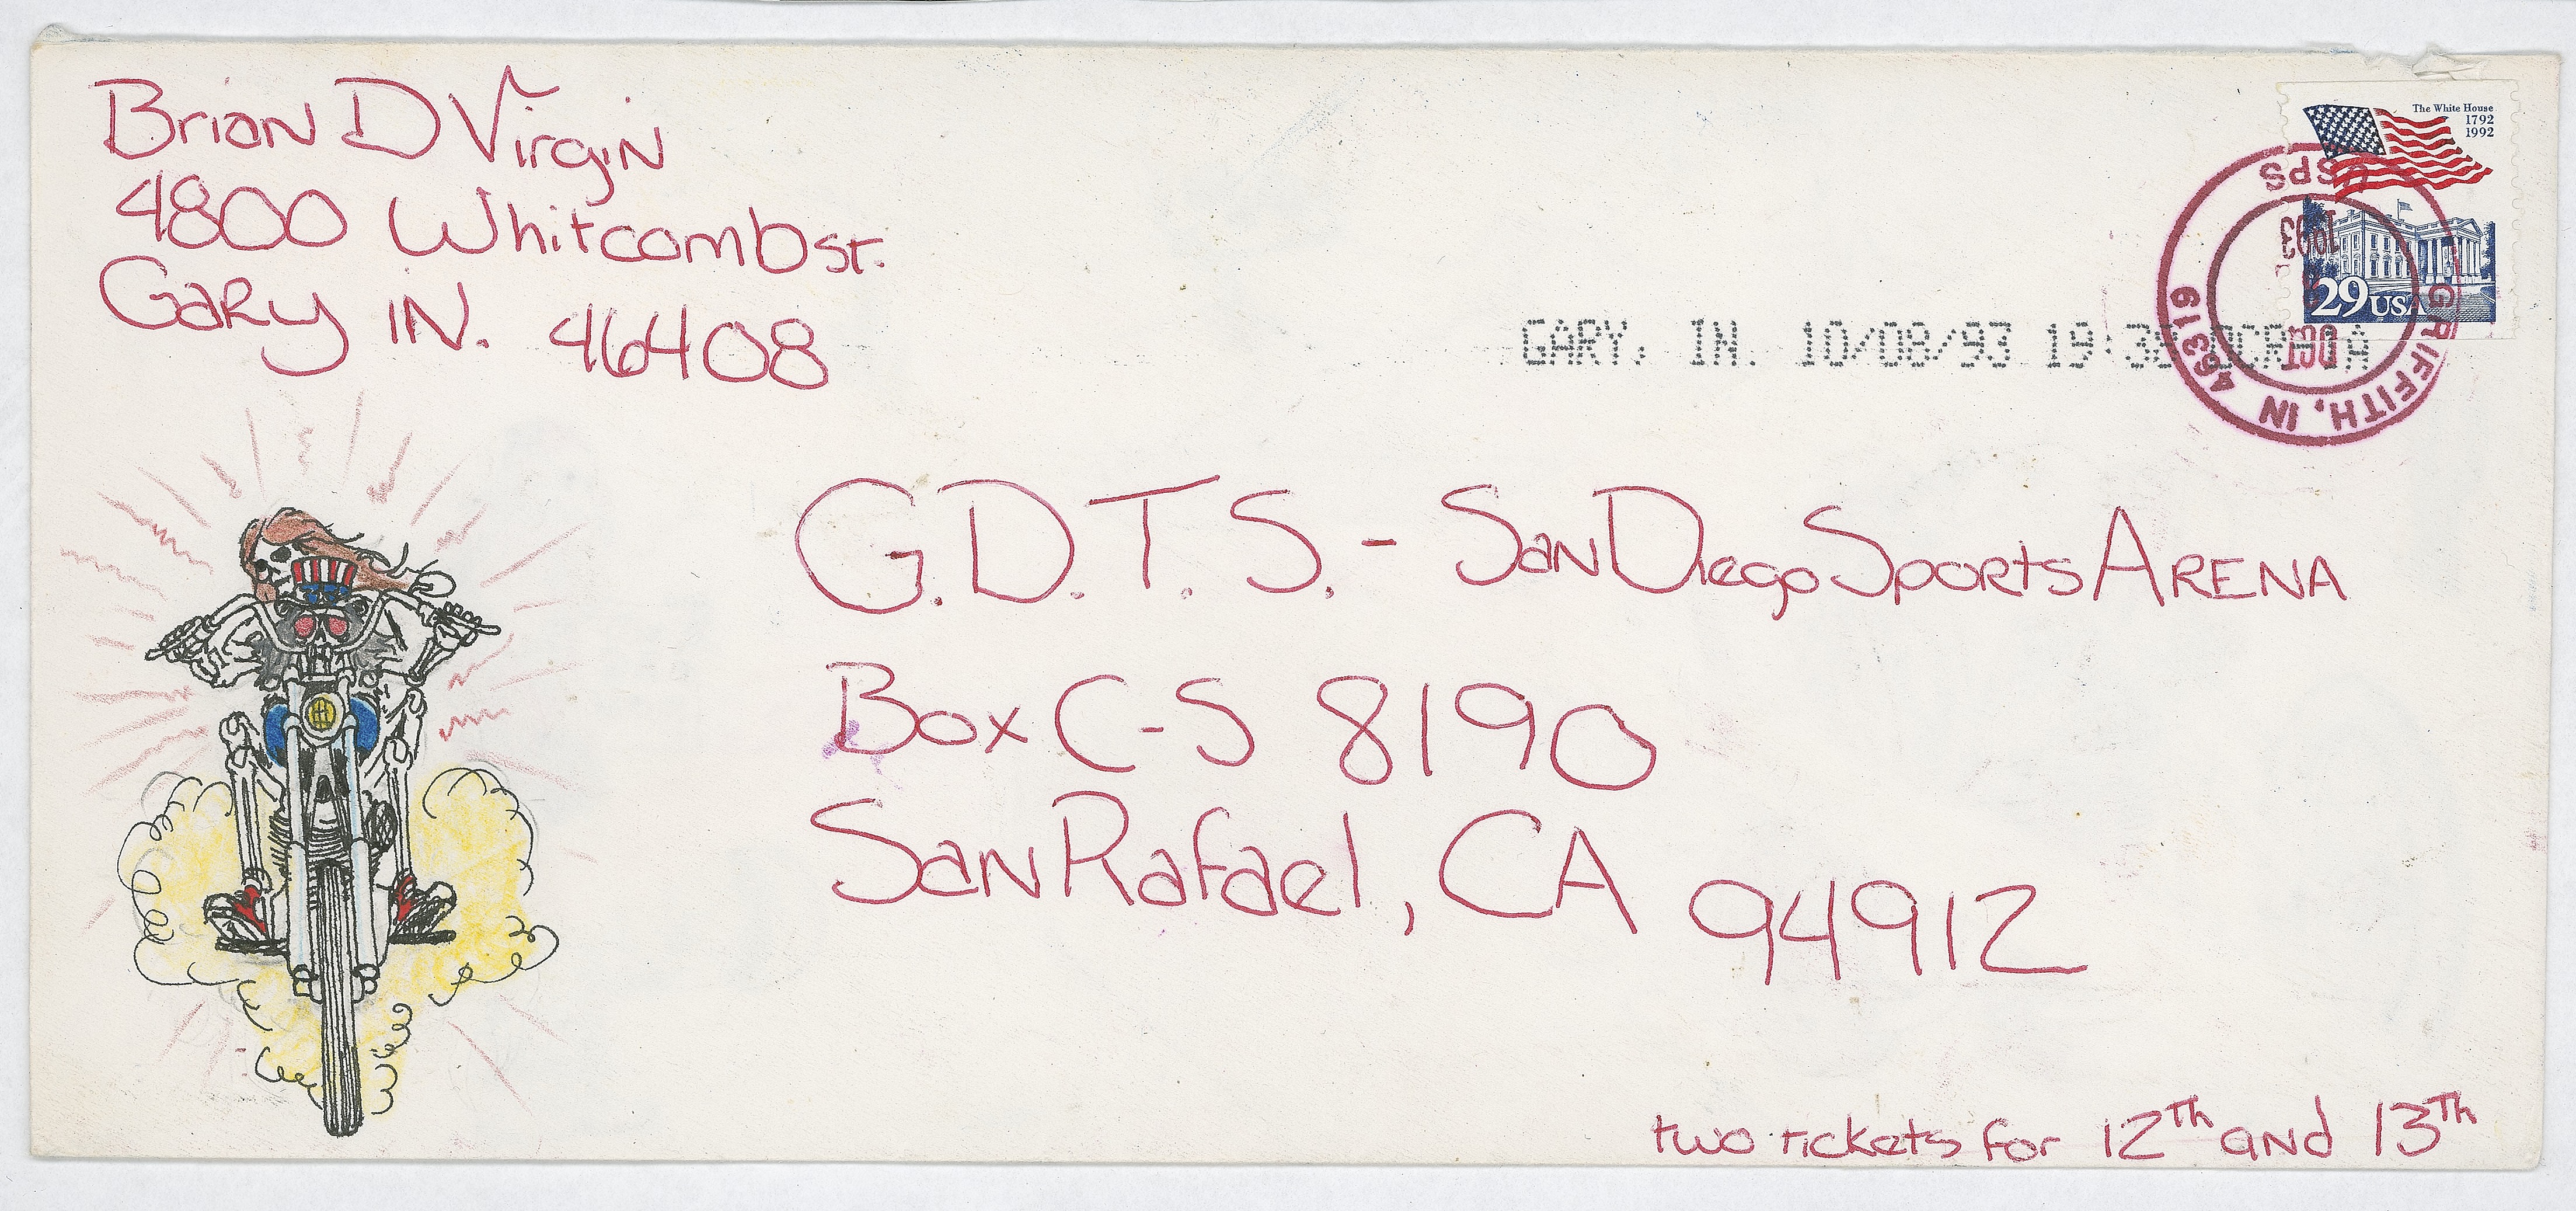 Brian D Virgin
4800 Whitcomb st.
Gary IN. 46408
The White House
1792
1992
29 USA
USPS
GRIFFITH, IN 46319
OCT
1993
GARY, IN. 10/08/93 19:38 OCR
G.D.T.S. - San Diego Sports ARENA
Box C-S 8190
San Rafael, CA 94912
two tickets for 12Th and 13Th